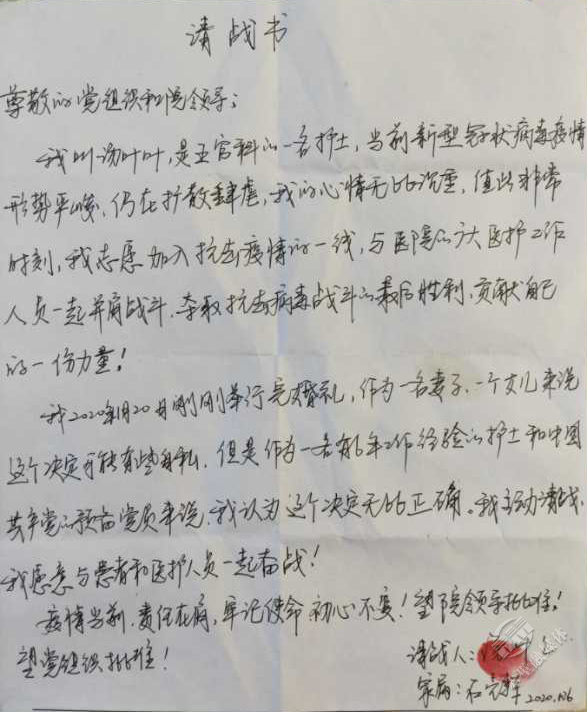 请战书
尊敬的党组织和院领导：
我叫汤叶叶，是五官科的一名护士，当前新型冠状病毒疫情
形势严峻，仍在扩散肆虐，我的心情无比沉重，值此非常
时刻，我志愿加入抗击疫情的一线，与医院的广大医护工作
人员一起并肩战斗，夺取抗击病毒战斗的最后胜利，贡献自己
的一份力量！
我2020年1月20日刚刚举行完婚礼，作为一名妻子、一个女儿来说
这个决定可能有些自私，但是作为一名有6年工作经验的护士和中国
共产党的预备党员来说，我认为这个决定无比正确。我主动请战，
我愿意与患者和医护人员一起奋战！
疫情当前，责任在肩，牢记使命，初心不变！望院领导批准！
望党组织批准！
请战人：
家属：石
2020.1.26